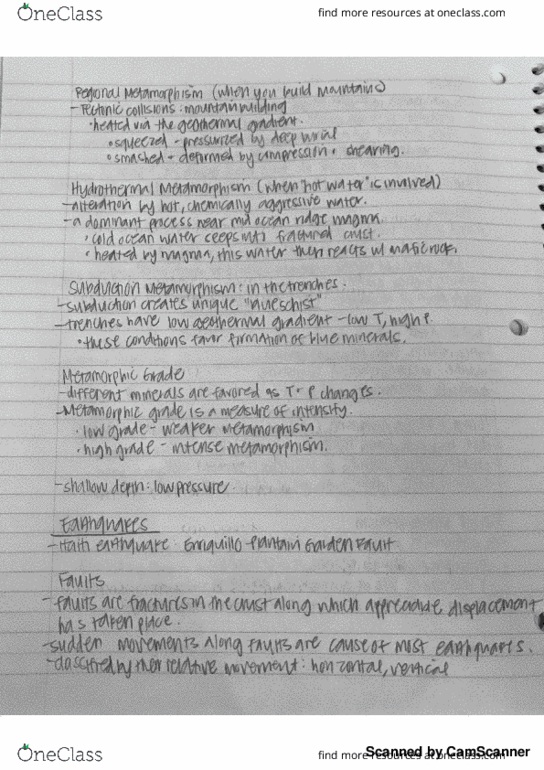 OneClass
find more resources at oneclass.com
Regional Metamorphism (when you build mountains)
- Tectonic collisions: mountain building
• heated via the geothermal gradient.
• squeezed - pressurized by deep burial
• smashed - deformed by compression + shearing.
Hydrothermal Metamorphism (when "hot water" is involved)
- alteration by hot, chemically aggressive water.
- a dominant process near mid ocean ridge magma.
• cold ocean water seeps into fractured crust.
• heated by magma, this water then reacts w/ mafic rock.
Subduction Metamorphism: in the trenches.
- subduction creates unique "blueschist"
- trenches have low geothermal gradient - low T, high P.
• these conditions favor formation of blue minerals.
Metamorphic Grade
- different minerals are favored as T + P changes.
- Metamorphic grade is a measure of intensity.
• low grade - weaker metamorphism
• high grade - intense metamorphism.
- shallow depth: low pressure.
Earthquakes
- Haiti Earthquake: Enriquillo-Plantain Garden Fault
Faults
- faults are fractures in the crust along which appreciable displacement
has taken place.
- sudden movements along faults are cause of most earthquakes.
- classified by their relative movement: horizontal, vertical
OneClass
find more resources at oneclass.com
Scanned by CamScanner